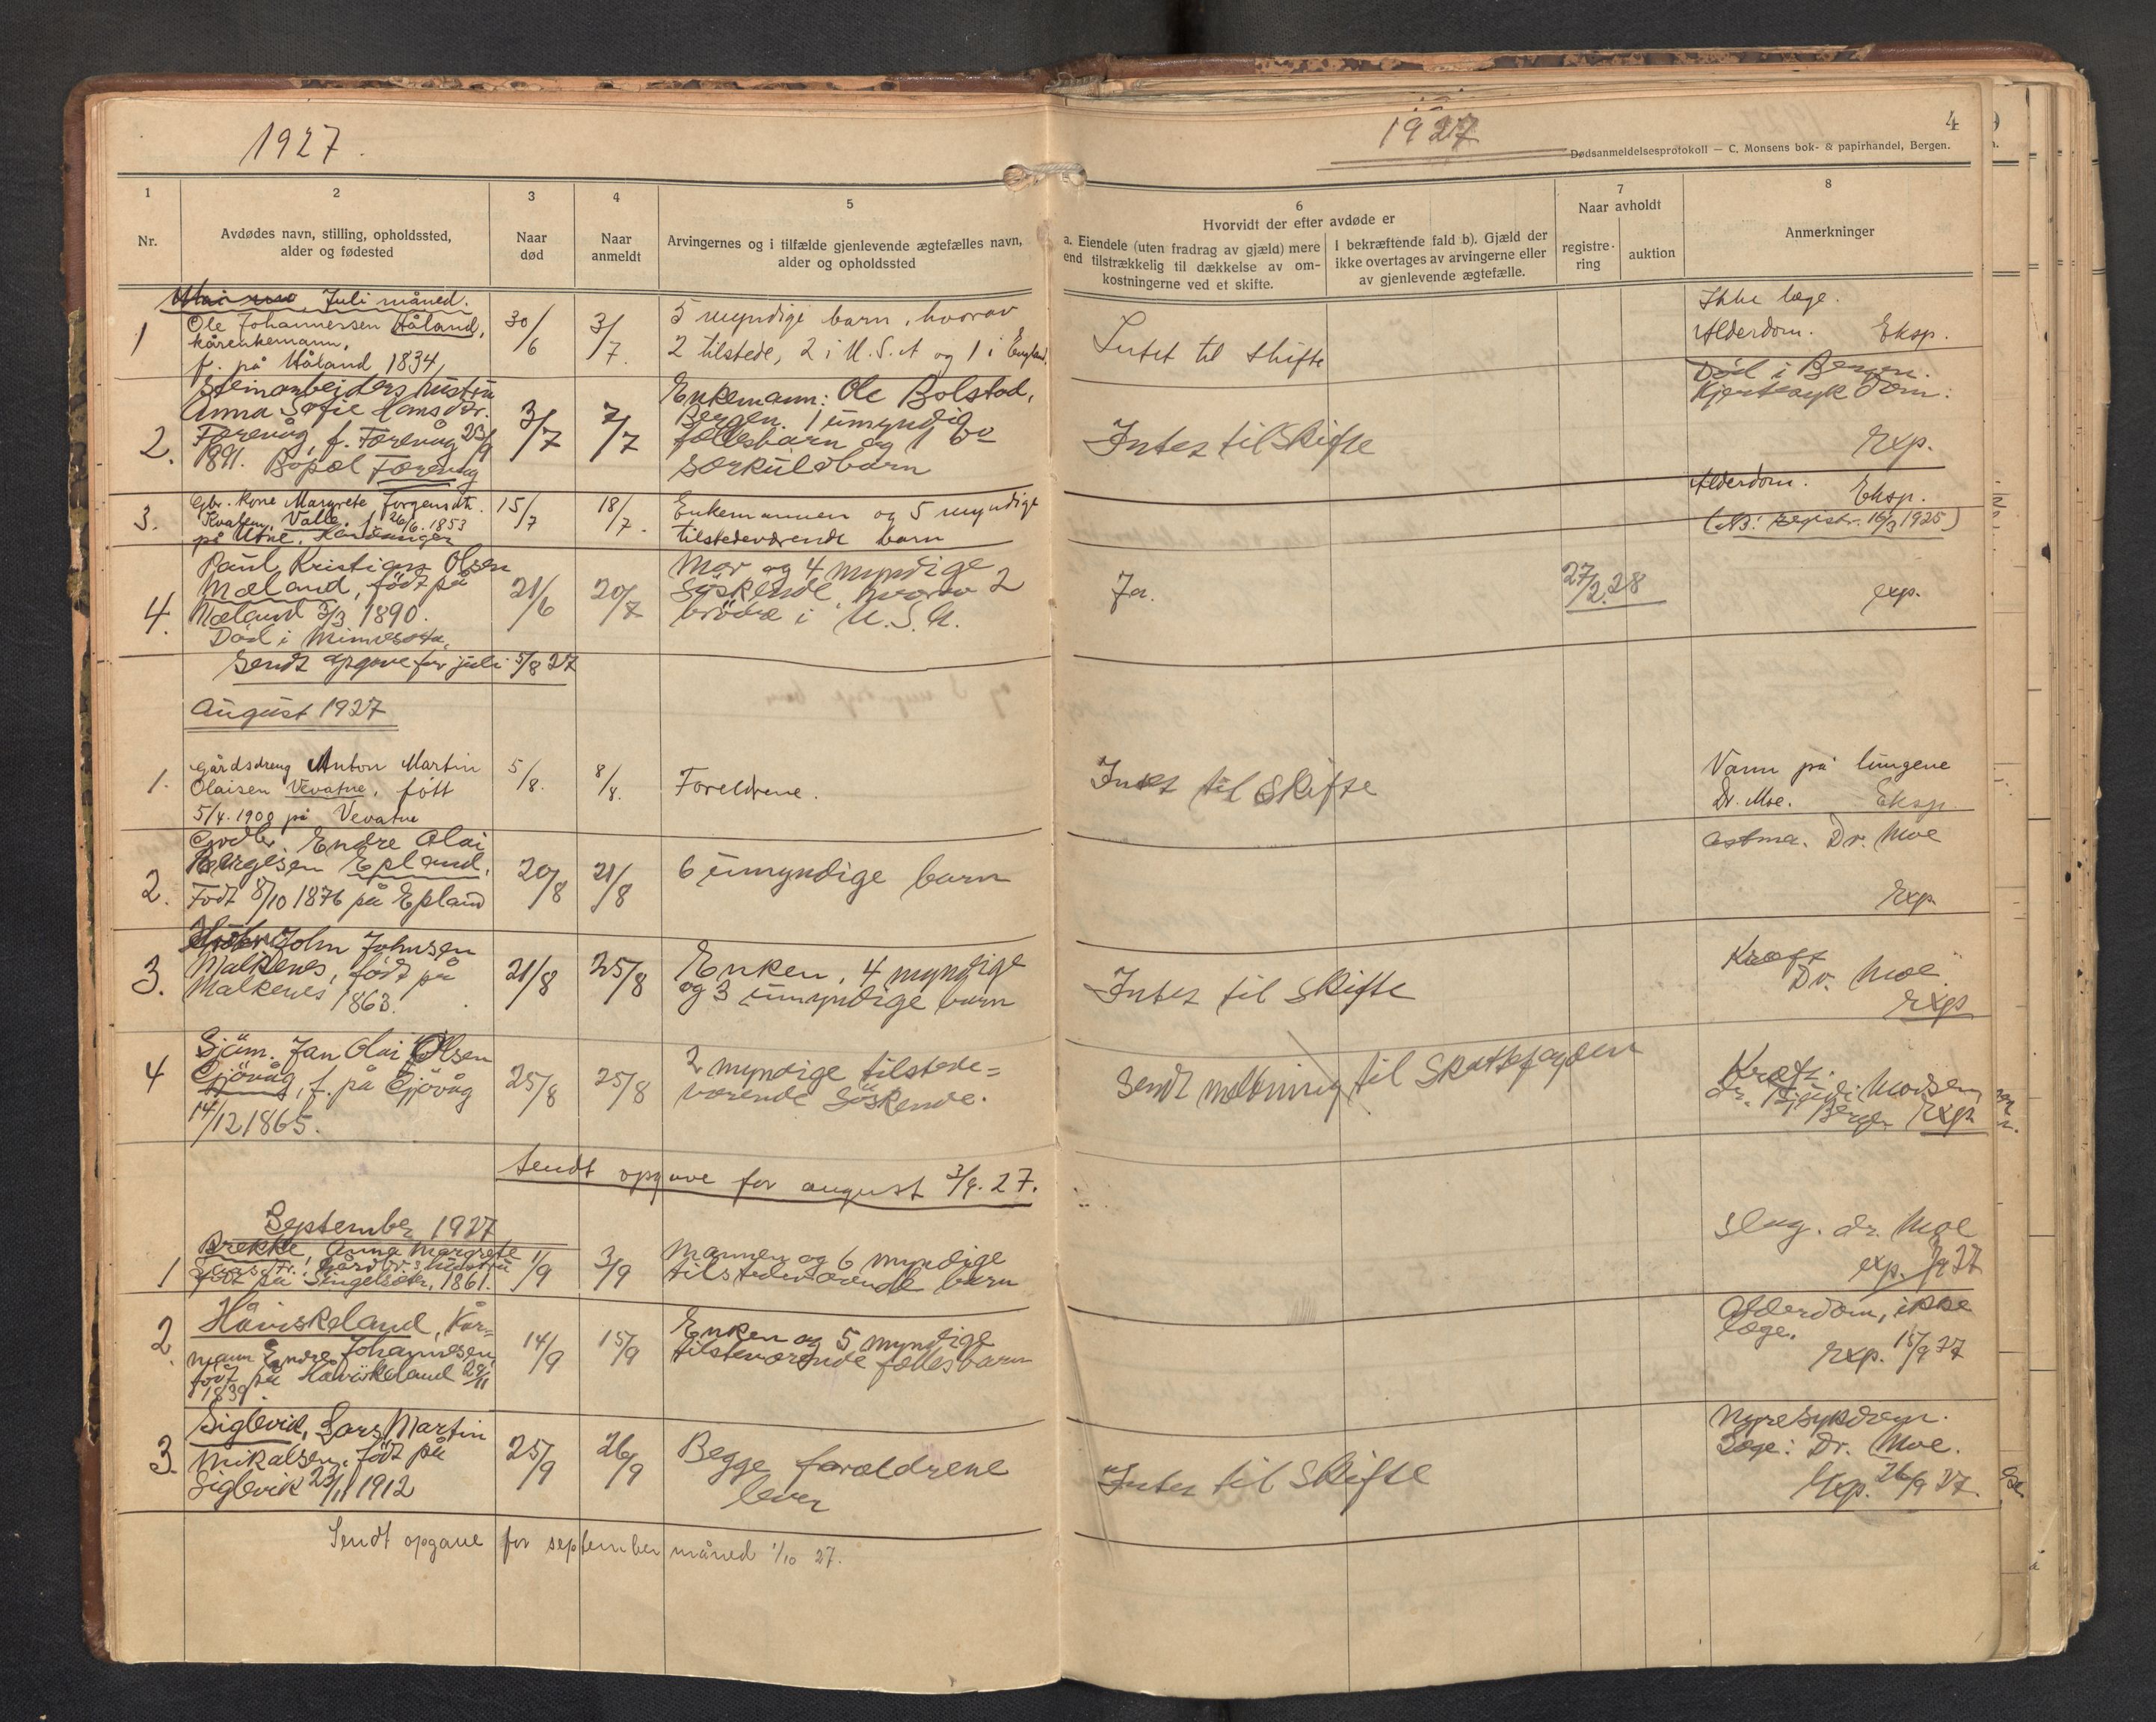 1927.
1
2
3
4
5
Nr.
Avdødes navn, stilling, opholdssted,
alder og fødested
Naar
død
Naar
anmeldt
Arvingernes og i tilfælde gjenlevende ægtefælles navn,
alder og opholdssted
Juli måned.
1
Ole Johannessen Håland,
kårenkemann,
f. på Håland 1834,
30/6
3/7.
5 myndige barn, hvorav
2 tilstede, 2 i U.S.A og 1 i England.
2.
Steinarbeiders hustru
Anna Sofie Hansdtr.
Førevåg, f. Førevåg 23/9
1891. Bopæl Førevåg
3/7
7/7
Enkemann: Ole Bolstad,
Bergen. 1 umyndig
fællesbarn og 1 do
særkulsbarn
3.
Gbr. kone Margrete Jørgensdtr.
Kvalem, Valle, f. 26/6. 1853
på Utne, Hardanger
15/7
18/7.
Enkemannen og 5 myndige
tilstedeværende barn
4.
Paul Kristian Olsen
Mæland, født på
Mæland 3/3 1890.
Død i Minnesota.
21/6
20/7
Mor og 4 myndige
søskende, hvorav 2
brödre i U.S.A.
Sendt opgave for juli 5/8 27
August 1927
1.
Gårdsdreng Anton Martin
Olaisen Vevatne, født
5/4. 1908 på Vevatne
5/8.
8/8.
Foreldrene.
2.
Endre Olai
Børgesen Epland,
Født 8/10 1876 på Epland
20/8
21/8
6 umyndige barn
3.
John Johnsen
Malkenes, født på
Malkenes 1863.
21/8
25/8
Enken, 4 myndige
og 3 umyndige barn
4
Sjöm. Jan Olai Olsen
Ejövåg, f. på Ejövåg
14/12 1865.
25/8
25/8
2 myndige tilstede=
værende Söskende.
Sendt opgave for august 3/9. 27.
September 1927
1
Brekke, Anna Margrete
Gårdbr.s hustru
født på Singelsæter, 1861.
1/9
3/9
Mannen og 6 myndige
tilstedeværende barn
2.
Håviskeland, Kår=
mann Endre Johannesen,
født på Håviskeland 28/11
1839.
14/9
15/9
Enken og 5 myndige
tilsteværende fællesbarn
3.
Siglevik, Lars Martin
Mikalsen, født på
Siglevik 23/11 1912
25/9
26/9
Begge foreldrene
lever
Sendt opgave for september måned 1/10 27.
1927
4
Dødsanmeldelsesprotokoll — C. Monsens bok- & papirhandel, Bergen.
6
Hvorvidt der efter avdøde er
a. Eiendele (uten fradrag av gjæld) mere
end tilstrækkelig til dækkelse av om-
kostningerne ved et skifte.
I bekræftende fald b). Gjæld der
ikke overtages av arvingerne eller
av gjenlevende ægtefælle.
7
Naar avholdt
registre-
ring
auktion
8
Anmerkninger
Intet til skifte
Ikke læge.
Alderdom. Eksp.
Intet til Skifte
Død i Bergen.
Hjertesykdom.
Exp.
Alderdom. Eksp.
(NB! Registr. 16/3 1925)
Ja.
27/2.28
exp.
Intet til Skifte
Vann på lungene
Dr. Moe. Eksp.
Astma. Dr. Moe
Exp
Intet til Skifte
Kræft
Dr. Moe
Exp
Sendt melding til Skattefogden
Kræft.
Bergen Exp
Slag. dr. Moe
exp. 3/9 27
Alderdom, ikke
læge.
Exp. 15/9 27
Intet til Skifte
Nyresykdom.
Læge: Dr. Moe.
Exp. 26/9 27.